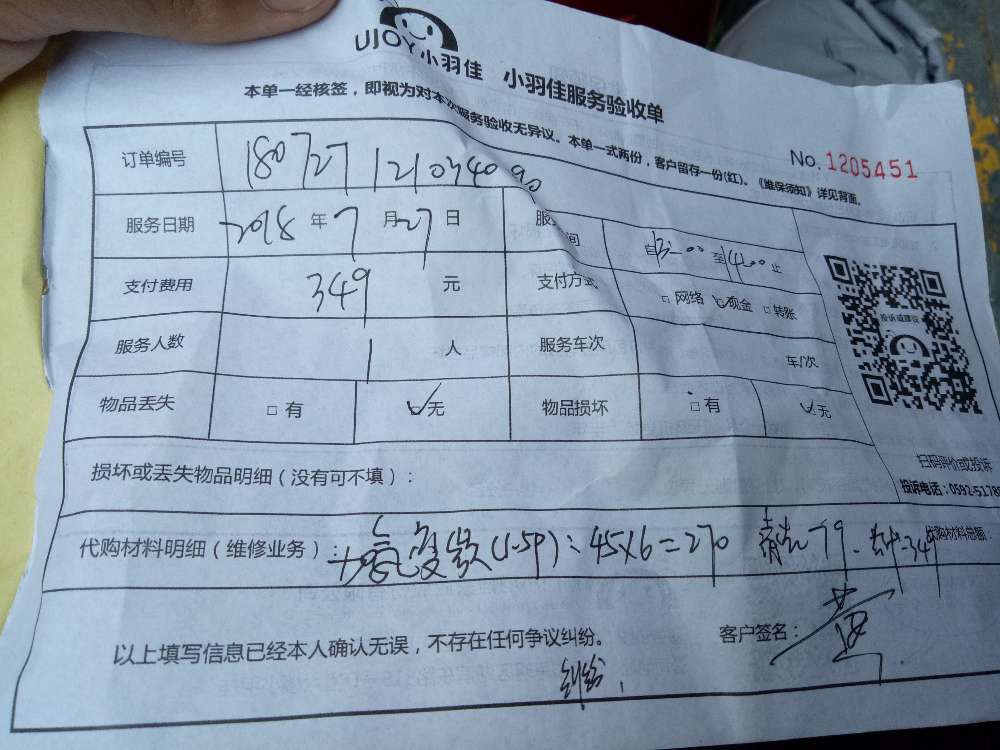 UJOY小羽佳 小羽佳服务验收单
本单一经核签，即视为对本次服务验收无异议。本单一式两份，客户留存一份(红)。《维保须知》详见背面。
No. 1205451
订单编号 180727121034090
服务日期 2018 年 7 月 27 日 服 间 自13:00 至14:00 止
支付费用 349 元 支付方式 □ 网络 ☑现金 □ 转账
服务人数 1 人 服务车次 车/次
投诉或建议
物品丢失 □ 有 ☑无 物品损坏 □ 有 ☑无
扫码评价或投诉
损坏或丢失物品明细（没有可不填）：
投诉电话：0592-5178
代购材料明细（维修业务）： 加氟 变频(1.5P)：45X6=270 清洗 79 349
代购材料总额：
以上填写信息已经本人确认无误，不存在任何争议纠纷。 客户签名：
纠纷，